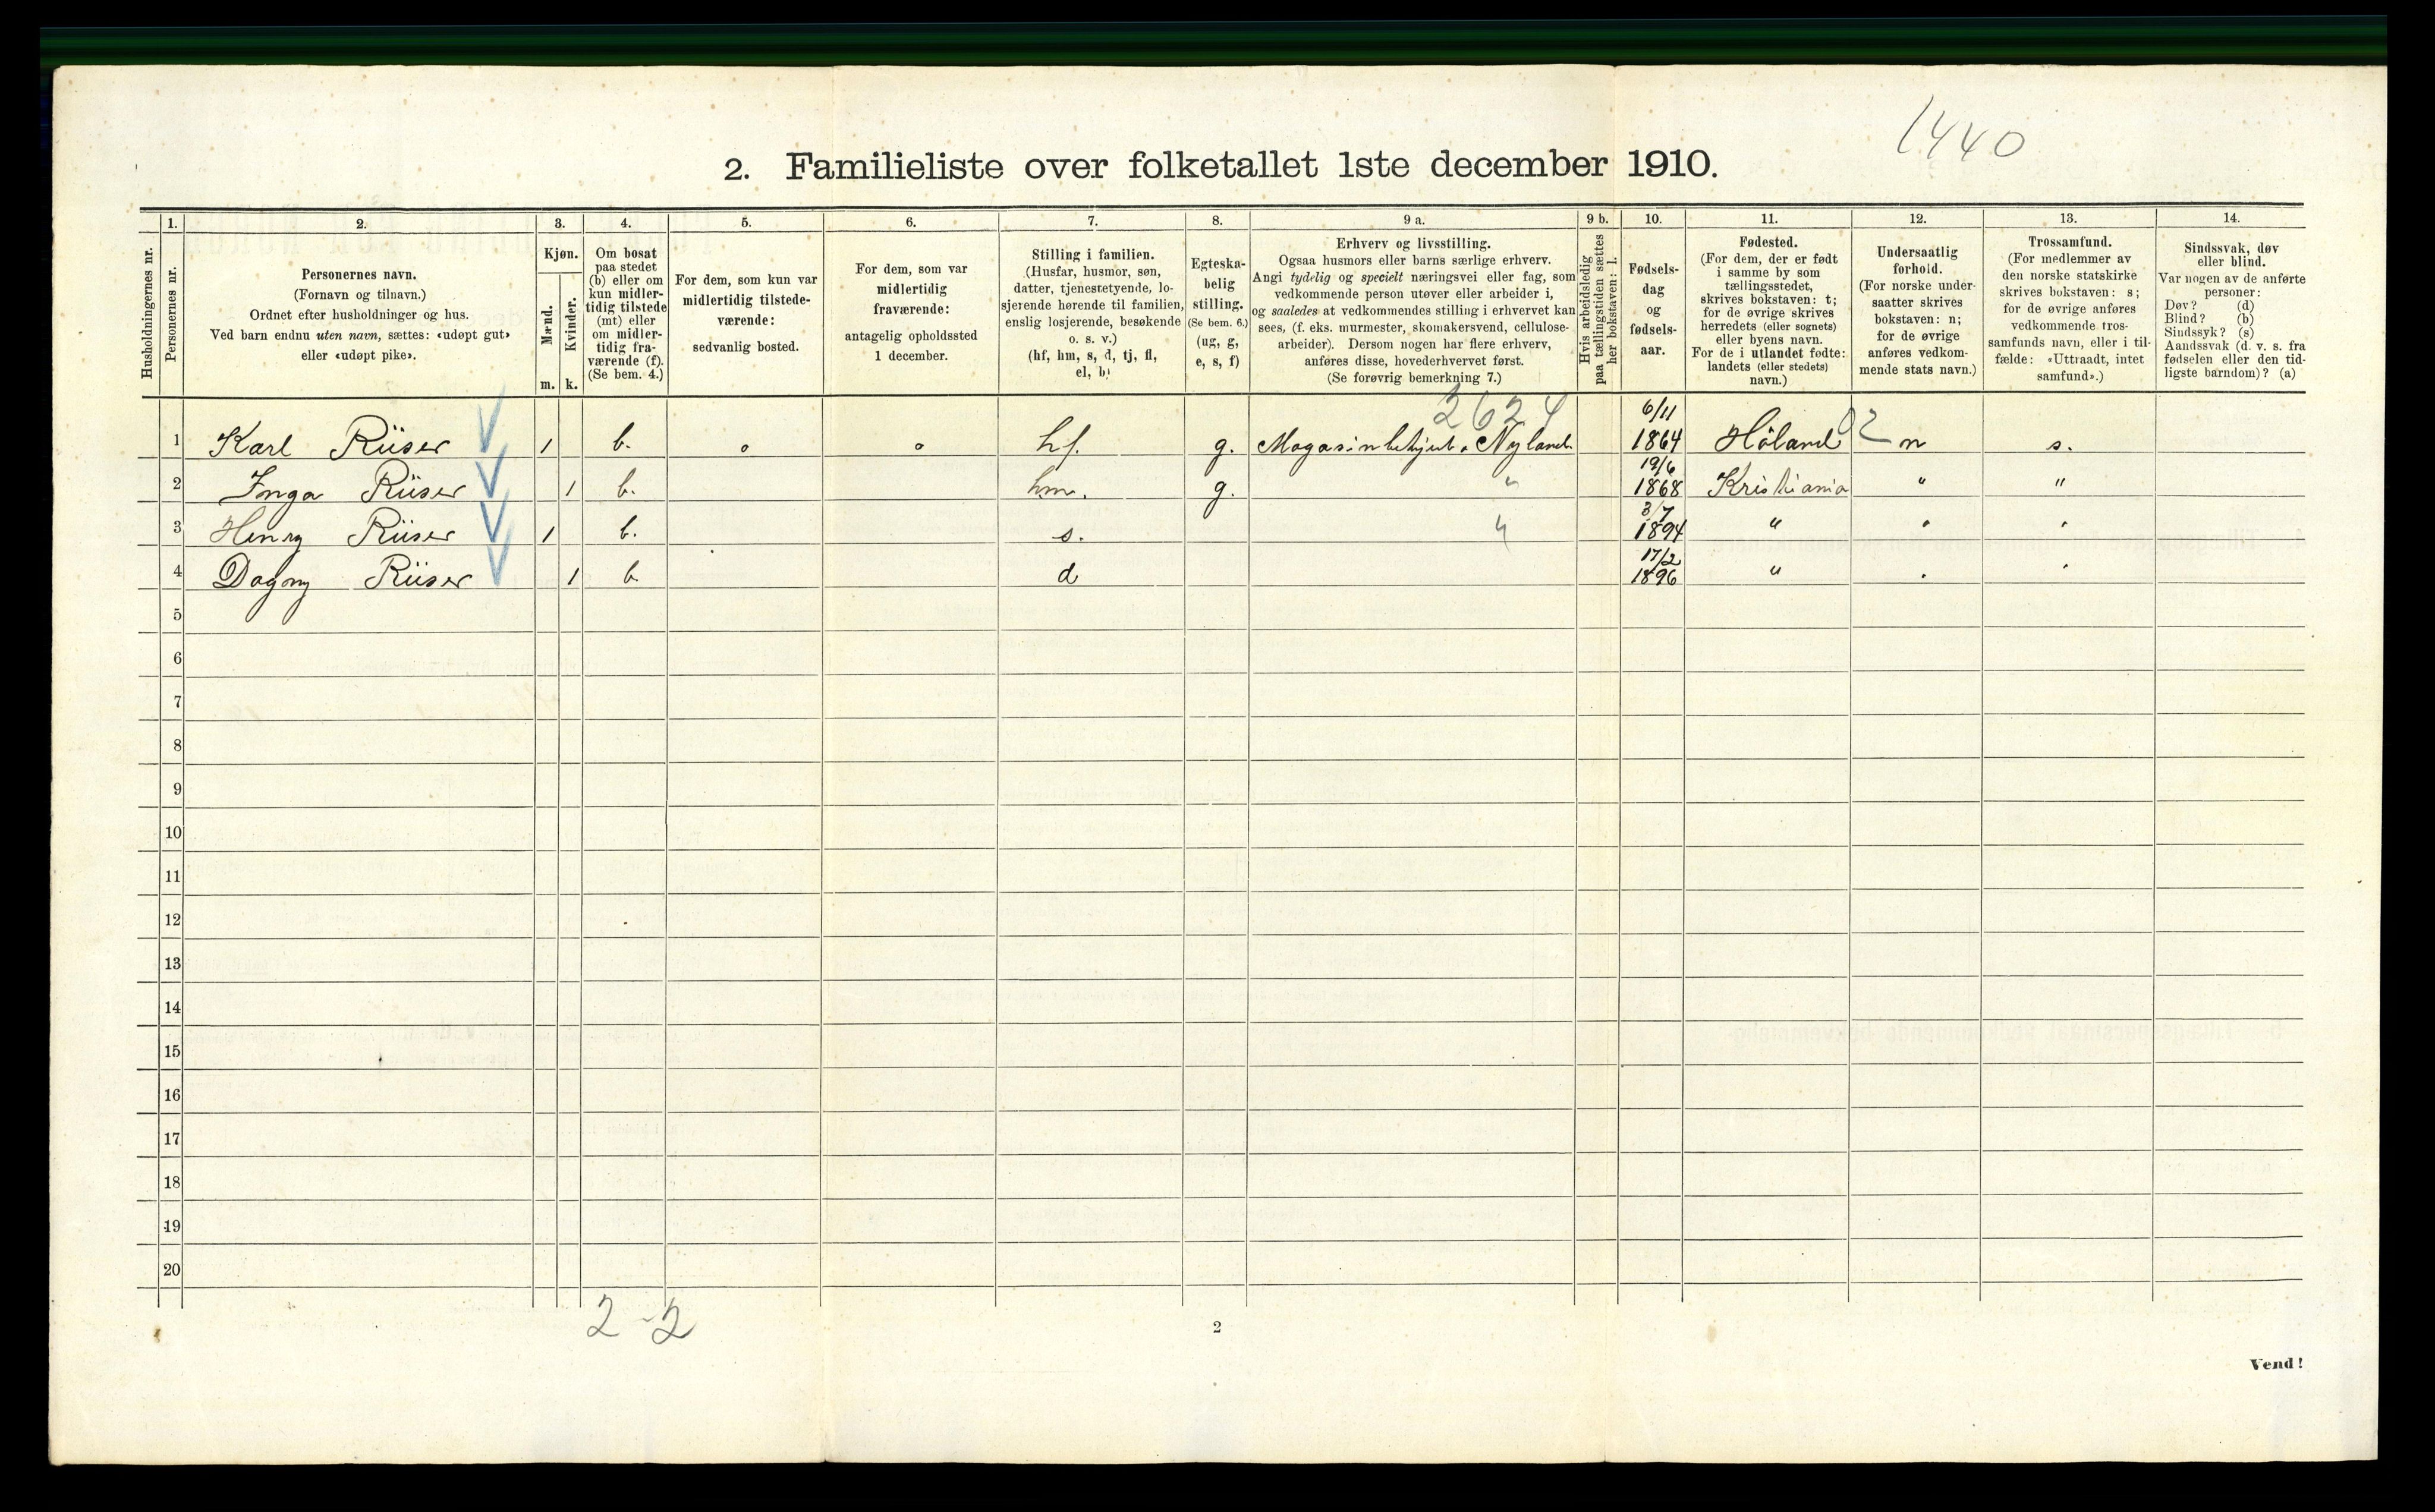 1440
2. Familieliste over folketallet 1ste december 1910.
Husholdningernes nr.
1.
Personernes nr.
2.
Personernes navn.
(Fornavn og tilnavn.)
Ordnet efter husholdninger og hus.
Ved barn endnu uten navn, sættes: «udøpt gut»
eller «udøpt pike».
3.
Kjøn.
Mænd.
Kvinder.
m. k.
4.
Om bosat
paa stedet
(b) eller om
kun midler-
tidig tilstede
(mt) eller
om midler-
tidig fra-
værende (f).
(Se bem. 4.)
5.
For dem, som kun var
midlertidig tilstede-
værende:
sedvanlig bosted.
6.
For dem, som var
midlertidig
fraværende:
antagelig opholdssted
1 december.
7.
Stilling i familien.
(Husfar, husmor, søn,
datter, tjenestetyende, lo-
sjerende hørende til familien,
enslig losjerende, besøkende
o. s. v.)
(hf, hm, s, d, tj, fl,
el, b)
8.
Egteska-
belig
stilling.
(Se bem. 6.)
(ug, g,
e, s, f)
9 a.
Erhverv og livsstilling.
Ogsaa husmors eller barns særlige erhverv.
Angi tydelig og specielt næringsvei eller fag, som
vedkommende person utøver eller arbeider i,
og saaledes at vedkommendes stilling i erhvervet kan
sees, (f. eks. murmester, skomakersvend, cellulose-
arbeider). Dersom nogen har flere erhverv,
anføres disse, hovederhvervet først.
(Se forøvrig bemerkning 7.)
9 b.
Hvis arbeidsledig
paa tællingstiden sættes
her bokstaven: l.
10.
Fødsels-
dag
og
fødsels-
aar.
11.
Fødested.
(For dem, der er født
i samme by som
tællingsstedet,
skrives bokstaven: t;
for de øvrige skrives
herredets (eller sognets)
eller byens navn.
For de i utlandet fødte:
landets (eller stedets)
navn.)
12.
Undersaatlig
forhold.
(For norske under-
saatter skrives
bokstaven: n;
for de øvrige
anføres vedkom-
mende stats navn.)
13.
Trossamfund.
(For medlemmer av
den norske statskirke
skrives bokstaven: s;
for de øvrige anføres
vedkommende tros-
samfunds navn, eller i til-
fælde: «Uttraadt, intet
samfund».)
14.
Sindssvak, døv
eller blind.
Var nogen av de anførte
personer:
Døv? (d)
Blind? (b)
Sindssyk? (s)
Aandssvak (d. v. s. fra
fødselen eller den tid-
ligste barndom)? (a)
2624
1 Karl Riiser 1 b. hf. g. Nyland 6/11 1864 Höland 02 n s.
2 Inga Riiser 1 b. hm. g. " 19/6 1868 Kristiania " "
3 Henry Riiser 1 b. s. 3/7 1894 "
4 Dagny Riiser 1 b d 17/2 1896 "
5
6
7
8
9
10
11
12
13
14
15
16
17
18
19
20
2-2
2
Vend!